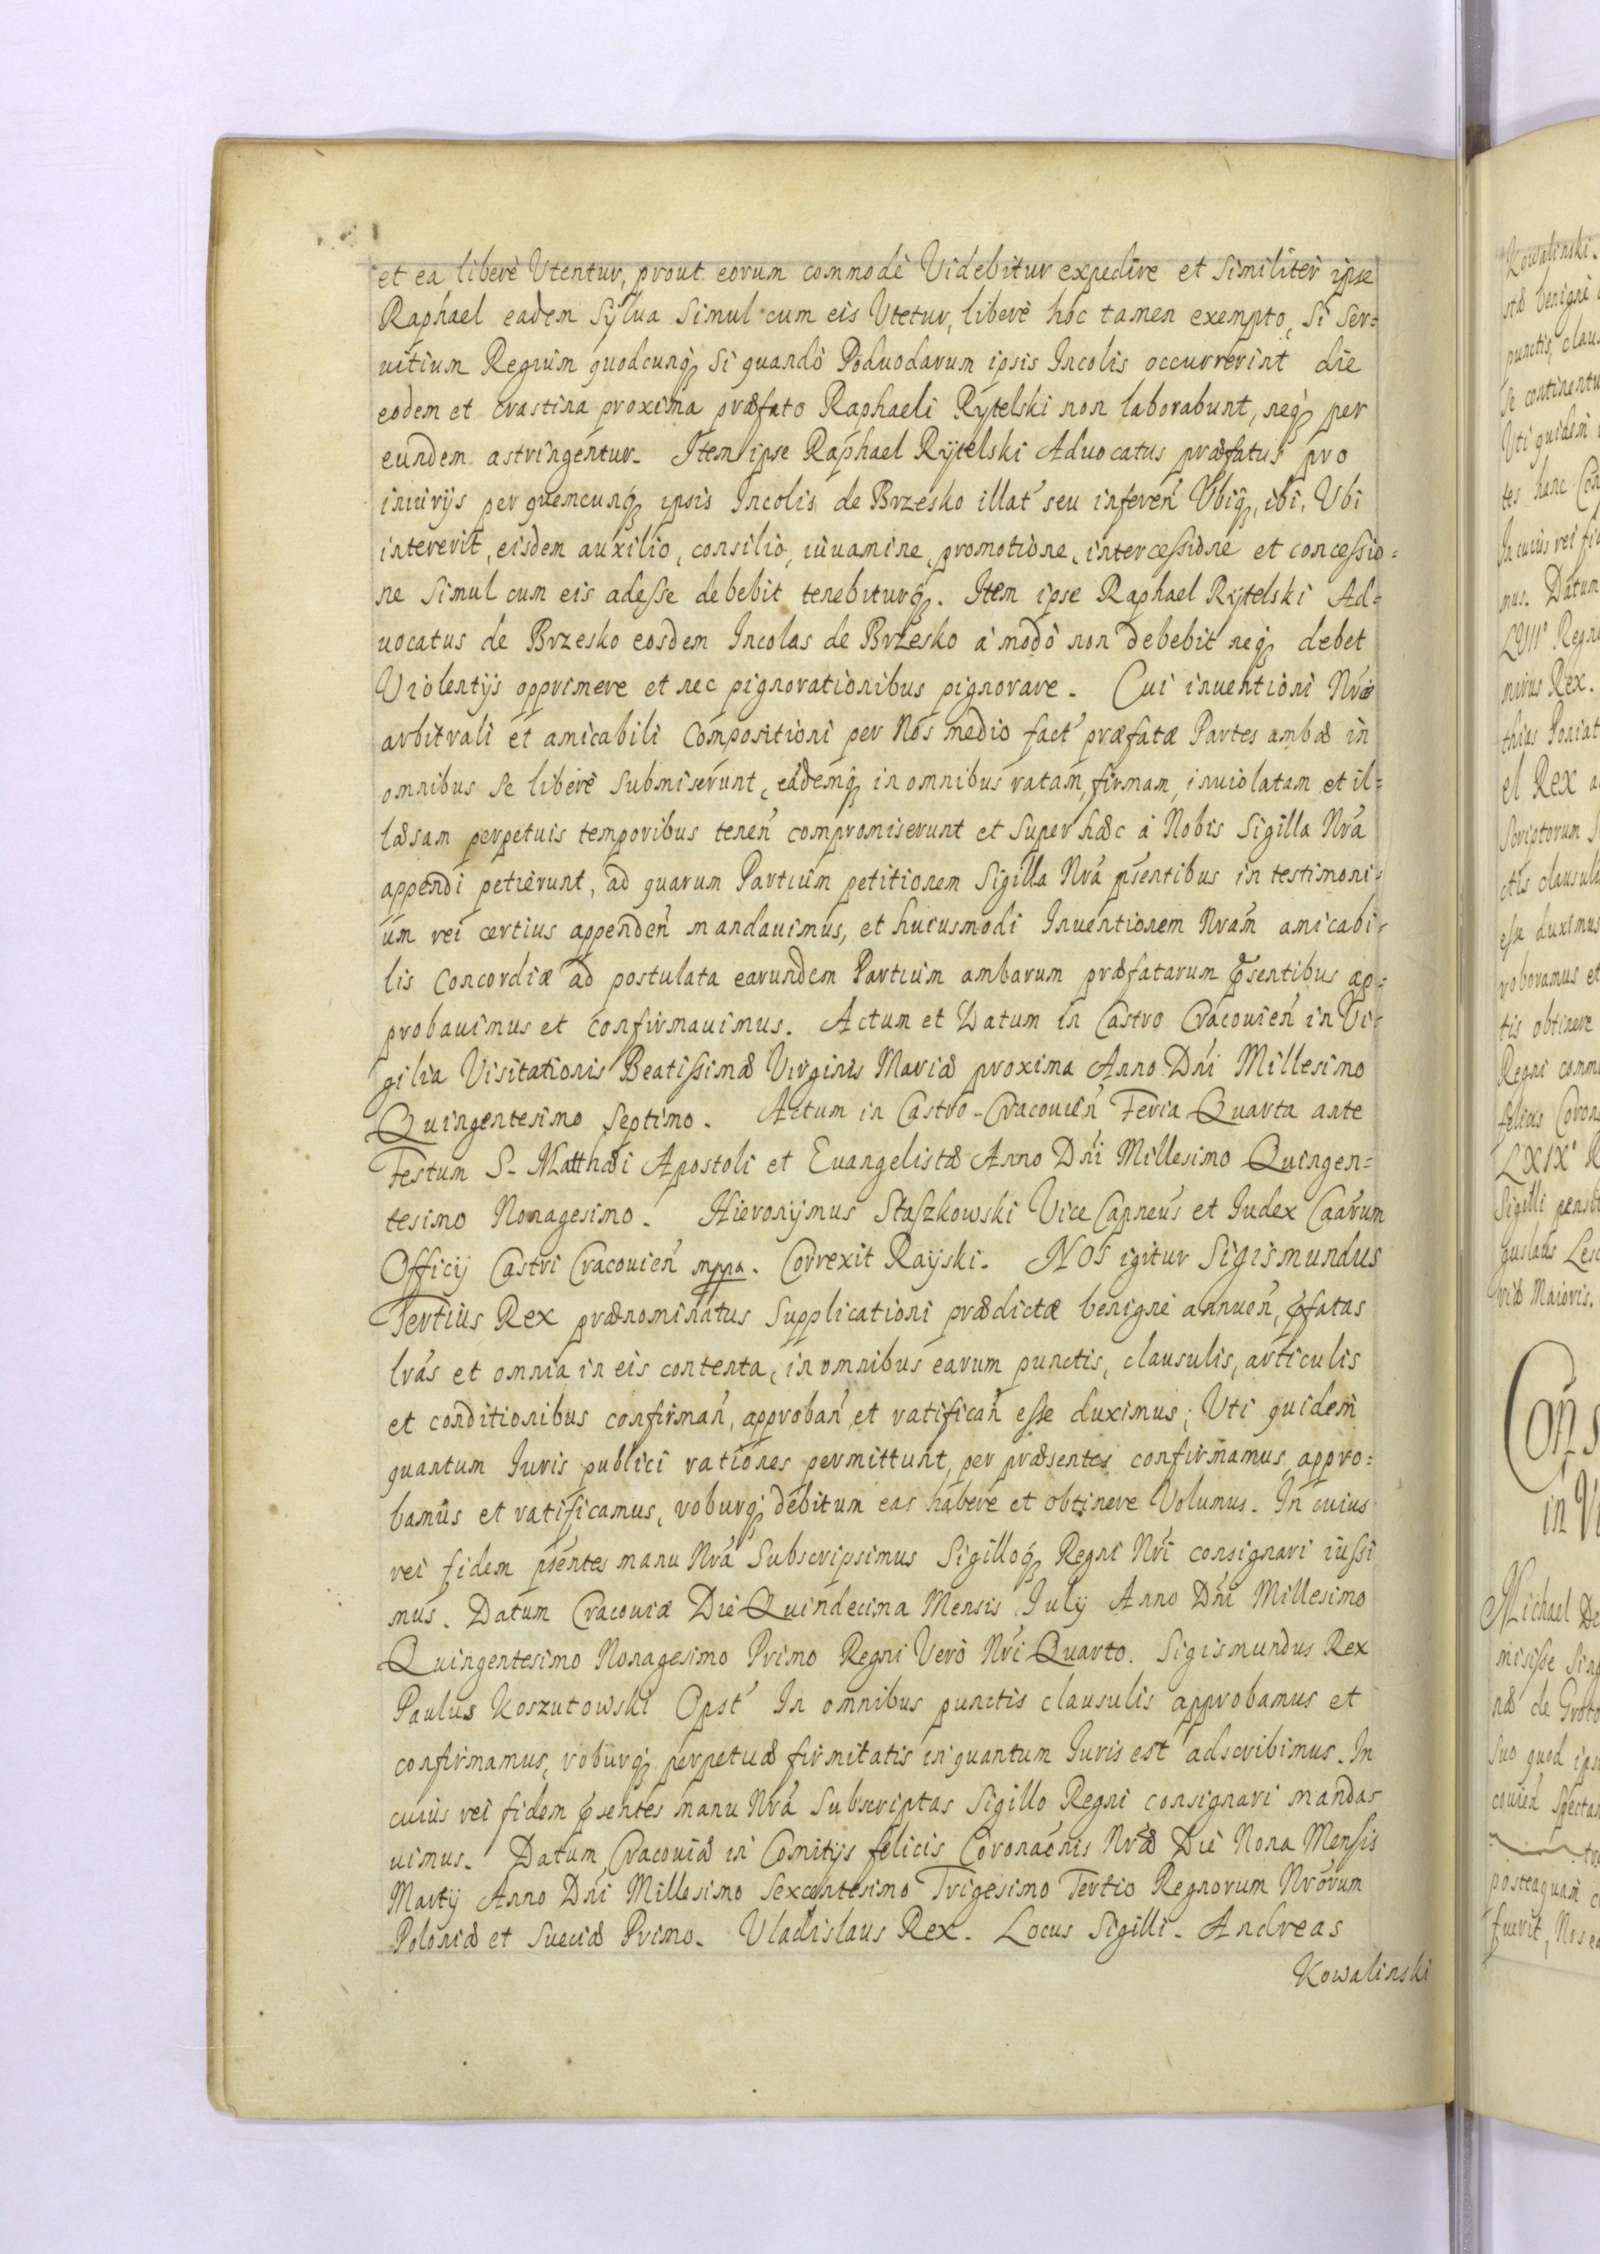 et ea liberè Utentur, prout eorum commodè Videbitur expedire et Similiter ipse
Raphael eadem Sylua Simul cum eis Utetur, liberè hoc tamen exempto, Si Ser=
uitium Regium quodcunq3 Si quandò Poduodarum ipsis Incolis occurrerint die
eodem et crastina proxima præfato Raphaeli Rÿtelski non laborabunt, neq3 per
eundem astringentur. Item ipse Raphael Rÿtelski Aduocatus præfatus pro
iniurijs per quemcunq3 ipsis Incolis de Brzesko illat' seu inferen' Ubiq3, ibi, Ubi
intererit, eisdem auxilio, consilio, iuuamine, promotione, intercessione et concessio=
ne Simul cum eis adesse debebit tenebiturq3. Item ipse Raphael Rÿtelski Ad=
uocatus de Brzesko eosdem Incolas de Brzesko à modò non debebit neq3 debet
Violentijs opprimere et nec pignorationibus pignorare. Cui inuentioni Nræ
arbitrali et amicabili Compositioni per Nos medio fact' præfatæ Partes ambæ in
omnibus Se liberè Submiserunt, eademq3 in omnibus ratam, firmam, inuiolatam et il=
læsam perpetuis temporibus tenen' compromiserunt et Super hæc à Nobis Sigilla Nra
appendi petierunt, ad quarum Partium petitionem Sigilla Nra pñsentibus in testimoni=
um rei certius appenden' mandauimus, et huiusmodi Inuentionem Nram amicabi=
lis Concordiæ ad postulata earundem Partium ambarum præfatarum pñsentibus ap=
probauimus et confirmauimus. Actum et Datum in Castro Cracouien' in Vi=
gilia Visitationis Beatissimæ Virginis Mariæ proxima Anno Dñi Millesimo
Quingentesimo Septimo. Actum in Castro Cracouien' Feria Quarta ante
Festum S. Matthæi Apostoli et Euangelistæ Anno Dñi Millesimo Quingen=
tesimo Nonagesimo. Hieronÿmus Staszkowski Vice Capneus et Iudex Caarum
Officij Castri Cracouien' mppa. Correxit Raÿski. Nos igitur Sigismundus
Tertius Rex prænominatus Supplicationi prædictæ benignè annuen', pfatas
lras et omnia in eis contenta, in omnibus earum punctis, clausulis, articulis
et conditionibus confirman', approban' et ratifican' esse duximus, Uti quidem
quantum Iuris publici rationes permittunt, per præsentes confirmamus, appro=
bamus et ratificamus, roburq3 debitum eas habere et obtinere Volumus. In cuius
rei fidem pñsentes manu Nra Subscripsimus Sigilloq3 Regni Nri consignari iussi
mus. Datum Cracouiæ Die Quindecima Mensis Julij Anno Dñi Millesimo
Quingentesimo Nonagesimo Primo Regni Verò Nri Quarto. Sigismundus Rex
Paulus Koszutowski In omnibus punctis clausulis approbamus et
confirmamus, roburq3 perpetuæ firmitatis in quantum Iuris est adscribimus. In
cuius rei fidem pñsentes manu Nra Subscriptas Sigillo Regni consignari manda=
uimus. Datum Cracouiæ in Comitijs felicis Coronaonis Nræ Die Nona Mensis
Martij Anno Dñi Millesimo Sexcentesimo Trigesimo Tertio Regnorum Nrorum
Poloniæ et Sueciæ Primo. Vladislaus Rex. Locus Sigilli. Andreas
Kowalinski